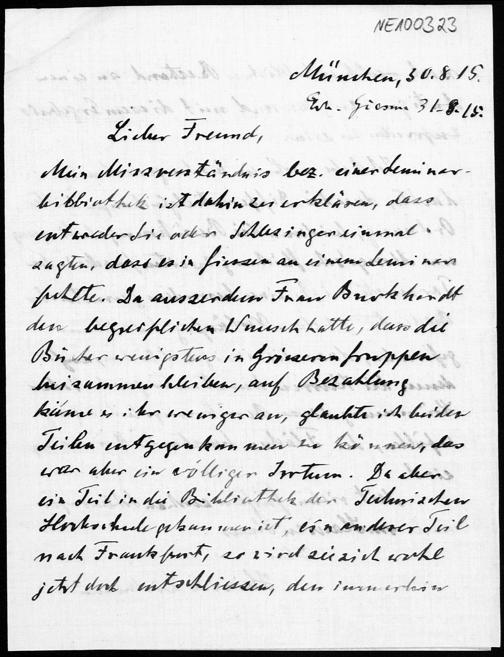 NE100323
München, 30.8.15.
Erh. Giessen 31-8.15.
Lieber Freund,
Mein Missverständnis bez. einer Seminar-
bibliothek ist dahin zu erklären, dass
entweder Sie oder Schlesinger einmal
sagten, dass es in Giessen an einem Seminar
fehlte. Da ausserdem Frau Burkhardt
den begreiflichen Wunsch hatte, dass die
Bücher wenigstens in Grösseren Gruppen
beisammen bleiben, auf Bezahlung
käme es ihr weniger an, glaubte ich beiden
Teilen entgegenkommen zu können, das
war aber ein völliger Irrtum. Da aber
ein Teil in die Bibliothek der Technischen
Hochschule gekommen ist, ein anderer Teil
nach Frankfurt, so wird sie sich wohl
jetzt doch entschliessen, den immerhin